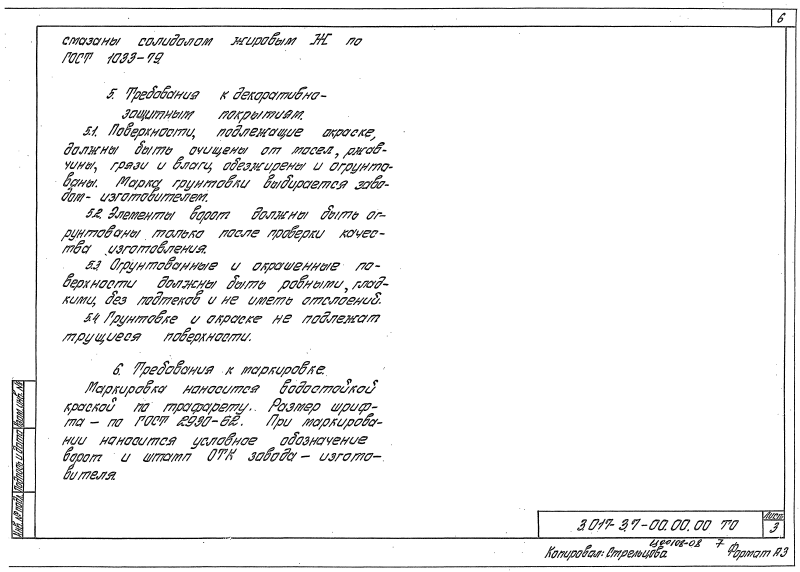 6
смазаны солидолом жировым Ж по
ГОСТ 1033-79
5. Требования к декоративно-
защитным покрытиям.
5.1. Поверхности, подлежащие окраске,
должны быть очищены от масел, ржав-
чины, грязи и влаги, обезжирены и огрунто-
ваны. Марка грунтовки выбирается заво-
дом- изготовителем.
5.2. Элементы ворот должны быть ог-
рунтованы только после проверки качес-
тва изготовления.
5.3 Огрунтованные и окрашенные по-
верхности должны быть ровными, глад-
кими, без подтеков и не иметь отслоений.
5.4 Грунтовке и окраске не подлежат
трущиеся поверхности.
6. Требования к маркировке.
Маркировка наносится водостойкой
краской по трафарету. Размер шриф-
та – по ГОСТ 2930-62. При маркирова-
нии наносится условное обозначение
ворот и штамп ОТК завода – изгото-
вителя.
Инв. № подл. Подпись и дата Взам. инв. №
3.017-3.7-00.00.00 ТО
Лист
3
Копировал: Стрельцова
7
Формат А3